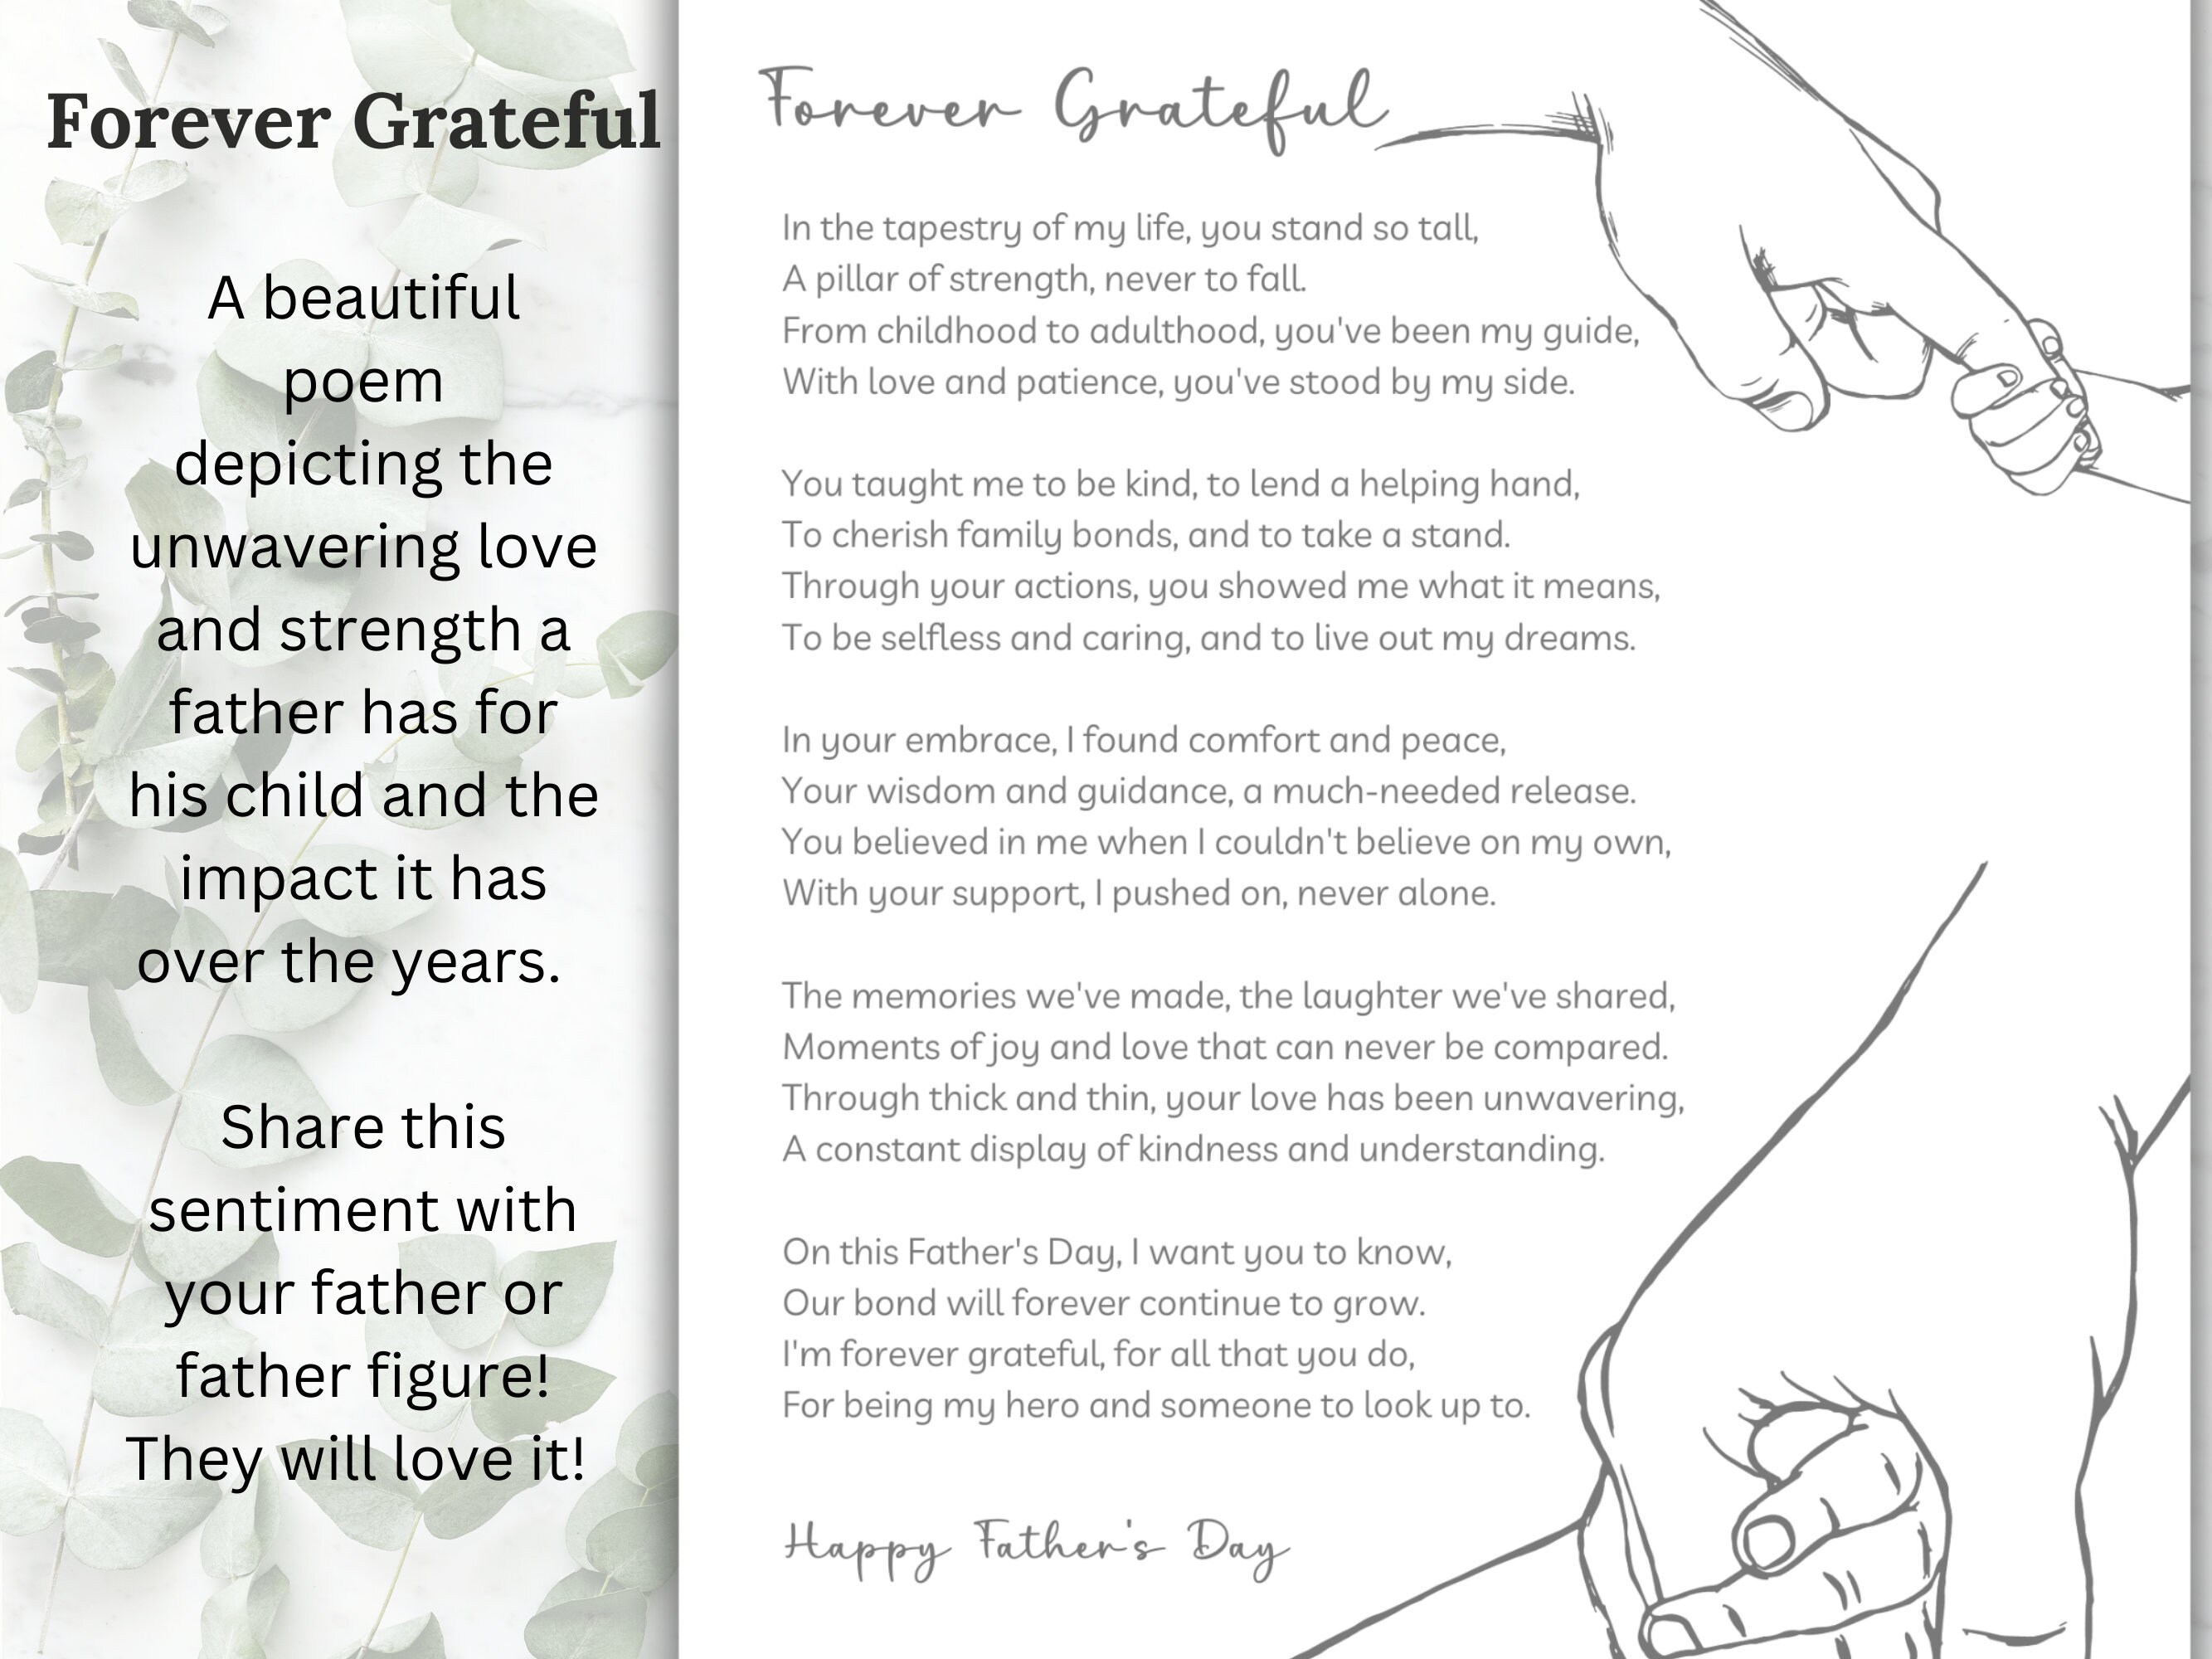 Forever Grateful
A beautiful
poem
depicting the
unwavering love
and strength a
father has for
his child and the
impact it has
over the years.
Share this
sentiment with
your father or
father figure!
They will love it!
Forever Grateful
In the tapestry of my life, you stand so tall,
A pillar of strength, never to fall.
From childhood to adulthood, you've been my guide,
With love and patience, you've stood by my side.
You taught me to be kind, to lend a helping hand,
To cherish family bonds, and to take a stand.
Through your actions, you showed me what it means,
To be selfless and caring, and to live out my dreams.
In your embrace, I found comfort and peace,
Your wisdom and guidance, a much-needed release.
You believed in me when I couldn't believe on my own,
With your support, I pushed on, never alone.
The memories we've made, the laughter we've shared,
Moments of joy and love that can never be compared.
Through thick and thin, your love has been unwavering,
A constant display of kindness and understanding.
On this Father's Day, I want you to know,
Our bond will forever continue to grow.
I'm forever grateful, for all that you do,
For being my hero and someone to look up to.
Happy Father's Day